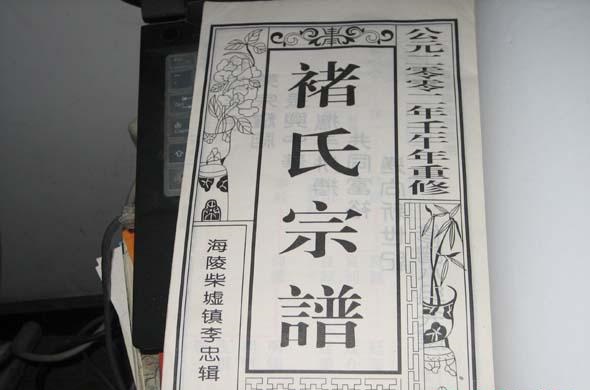 公元二零零二年壬午年重修
褚氏宗譜
海陵柴墟镇李忠辑